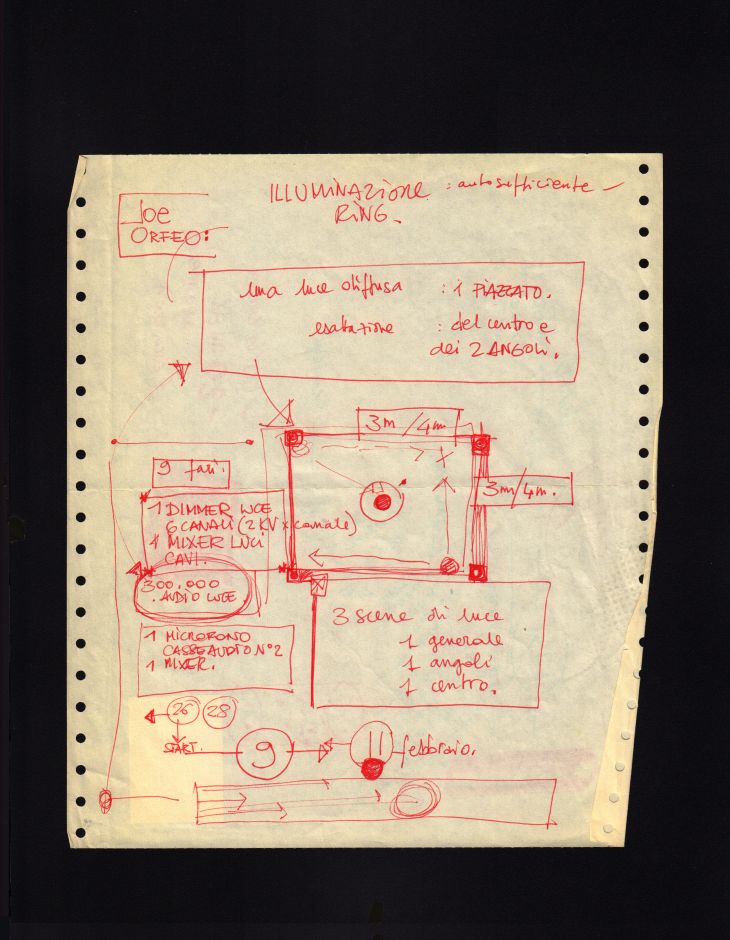 Joe
ORFEO:
ILLUMINAZIONE : autosufficiente
RING.
una luce diffusa : 1 PIAZZATO.
esaltazione : del centro e
dei 2 ANGOLI.
3m/4m
3m/4m.
9 fari.
1 DIMMER LUCE
6 CANALI (2KV x canale)
1 MIXER LUCI
CAVI.
300.000
. AUDIO LUCE
1 MICROFONO
CASSE AUDIO N°2
1 MIXER.
3 scene di luce
1 generale
1 angoli
1 centro.
26 28
START. 9 11 febbraio.